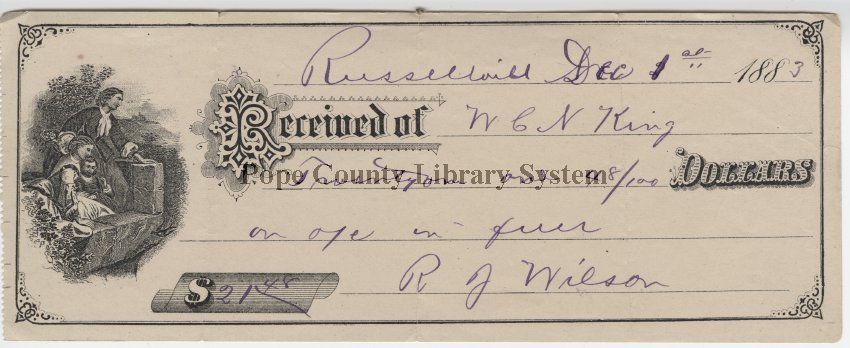 Russellvill Dec 1st 1883
Received of W C N King
Twenty one and 48/100 Dollars
Pope County Library System
on a/c in full
$ 21.48 R J Wilson